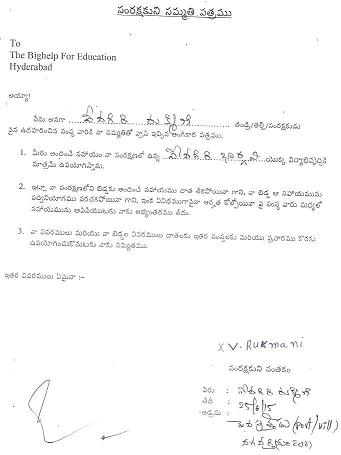 సంరక్షకుని సమ్మతి పత్రము
To
The Bighelp For Education
Hyderabad
అయ్యా!
నేను అనగా రుక్మిణి తండ్రి/తల్లి/సంరక్షకుడు
పైన ఉదహరించిన సంస్థ వారికి నా సమ్మతితో వ్రాసి ఇచ్చిన అంగీకార పత్రము.
1. మీరు అందించే సహాయం నా సంరక్షణలో ఉన్న యొక్క విద్యాభివృద్ధికి
మాత్రమే ఉపయోగిస్తాను.
2. ఇట్లా నా సంరక్షణలోని బిడ్డకు అందించే సహాయము దాత లేకపోయినా గాని, నా బిడ్డ ఆ సహాయమును
సద్వినియోగము పరచకపోయినా గాని, ఇంక ఏవిధముగానైనా అర్హత కోల్పోయినా పై సంస్థ వారు మధ్యలో
సహాయమును ఆపివేయుటకు నాకు అభ్యంతరము లేదు.
3. నా వివరములు మరియు నా బిడ్డల వివరములు దాతలకు ఇతర సంస్థలకు మరియు ప్రచారము కొరకు
ఉపయోగించుకొనుటకు నాకు సమ్మతము.
ఇతర వివరములు ఏమైనా :-
x V. Rukmani
సంరక్షకుని సంతకం
పేరు : రుక్మిణి
తేది : 25/6/15
అడ్రసు : (post/vill)